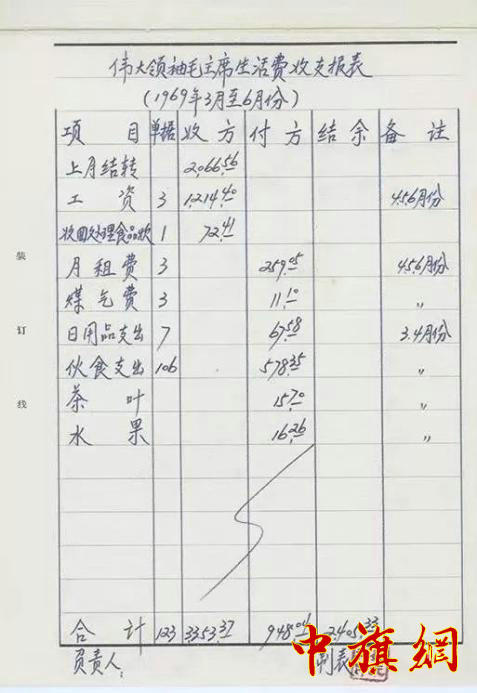 伟大领袖毛主席生活费收支报表
(1969年3月至6月份)
项目 单据 收方 付方 结余 备注
上月结转 2,066.56
工资 3 1,214.40 4.5.6月份
收回处理食品款 1 72.41
月租费 3 259.05 4.5.6月份
煤气费 3 11.10 〃
日用品支出 7 67.58 3.4月份
伙食支出 106 578.35 〃
茶叶 15.70 〃
水果 16.26 〃
合计 123 3353.37 948.04 2,405.33
负责人: 制表
装订线
中旗網